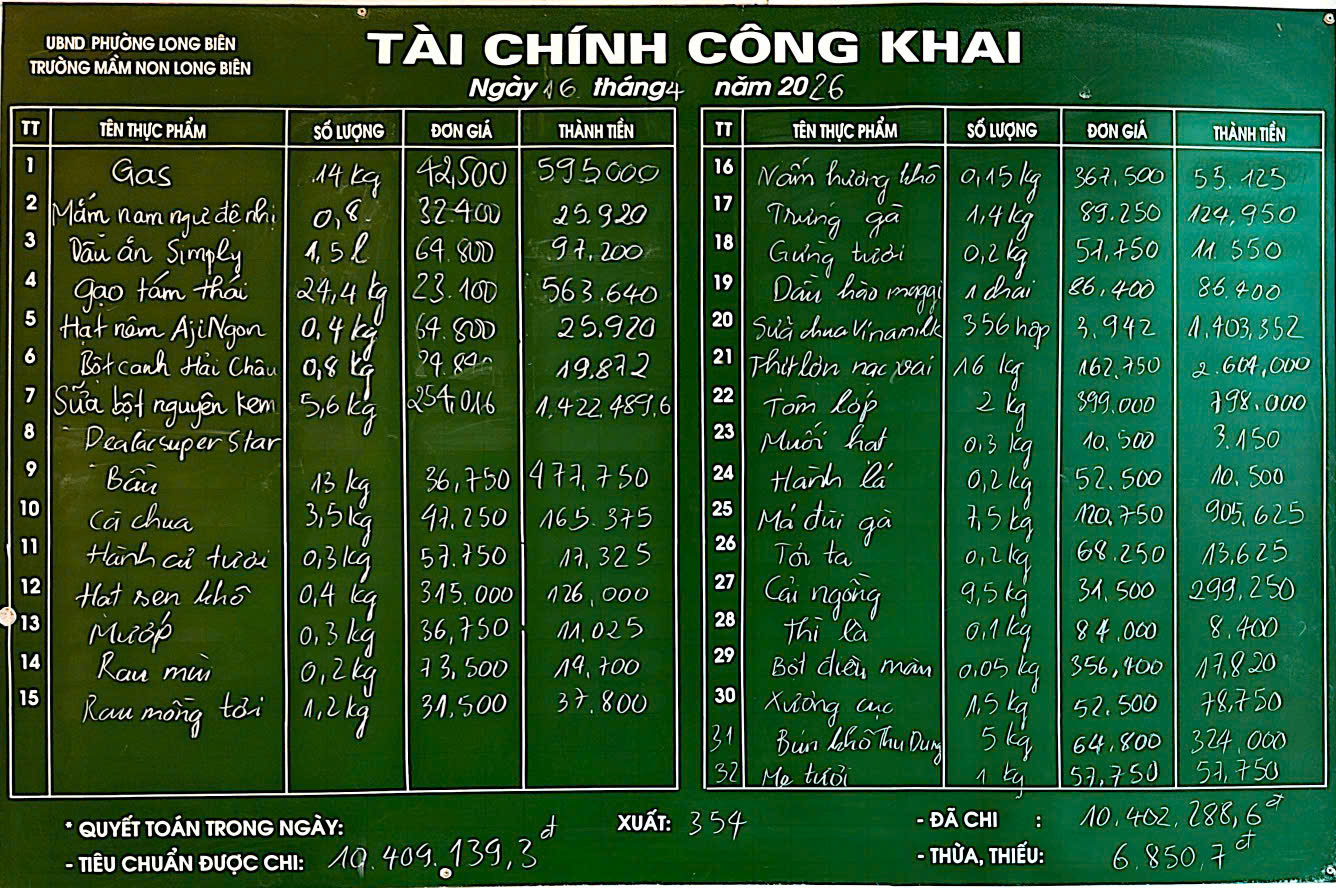 UBND PHƯỜNG LONG BIÊN
TRƯỜNG MẦM NON LONG BIÊN
TÀI CHÍNH CÔNG KHAI
Ngày 16 tháng 4 năm 2026
TT TÊN THỰC PHẨM SỐ LƯỢNG ĐƠN GIÁ THÀNH TIỀN
1 Gas 14 kg 42,500 595000
2 Mắm nam ngư đệ nhị 0,8 32.400 25.920
3 Dầu ăn Simply 1,5 l 64.800 97.200
4 Gạo tám thái 24,4 kg 23.100 563.640
5 Hạt nêm AjiNgon 0,4 kg 64.800 25.920
6 Bột canh Hải Châu 0,8 kg 24.840 19,872
7 Sữa bột nguyên kem 5,6 kg 254,016 1,422.489,6
8 Dealac super Star
9 Bầu 13 kg 36,750 477,750
10 Cà chua 3,5 kg 47.250 165.375
11 Hành củ tươi 0,3 kg 57.750 17,325
12 Hạt sen khô 0,4 kg 315.000 126,000
13 Mướp 0,3 kg 36,750 11,025
14 Rau mùi 0,2 kg 73,500 14,700
15 Rau mồng tơi 1,2 kg 31,500 37.800
TT TÊN THỰC PHẨM SỐ LƯỢNG ĐƠN GIÁ THÀNH TIỀN
16 Nấm hương khô 0,15 kg 367,500 55.125
17 Trứng gà 1,4 kg 89.250 124,950
18 Gừng tươi 0,2 kg 57,750 11.550
19 Dầu hào maggi 1 chai 86.400 86.400
20 Sữa chua Vinamilk 356 hộp 3,942 1,403,352
21 Thịt lợn nạc vai 16 kg 162,750 2.604,000
22 Tôm lớp 2 kg 399.000 798.000
23 Muối hạt 0,3 kg 10,500 3.150
24 Hành lá 0,2 kg 52.500 10,500
25 Má đùi gà 7,5 kg 120,750 905,625
26 Tỏi ta 0,2 kg 68.250 13,625
27 Cải ngồng 9,5 kg 31,500 299,250
28 Thì là 0,1 kg 84.000 8.400
29 Bột điều màu 0,05 kg 356,400 17,820
30 Xương cục 1,5 kg 52.500 78,750
31 Bún khô Thu Dung 5 kg 64,800 324,000
32 Me tươi 1 kg 57,750 57,750
* QUYẾT TOÁN TRONG NGÀY: XUẤT: 354
- TIÊU CHUẨN ĐƯỢC CHI: 10.409.139,3 đ
- ĐÃ CHI : 10.402.288,6 đ
- THỪA, THIẾU: 6.850,7 đ